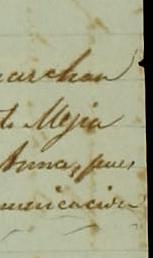 marchan
de Mejia
Anna, pues
municacion